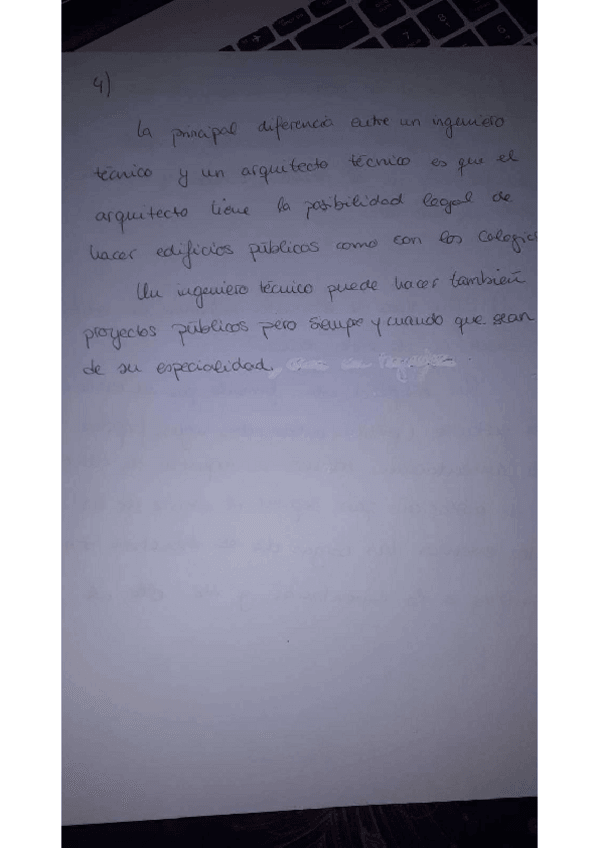 4)
La principal diferencia entre un ingeniero
técnico y un arquitecto técnico es que el
arquitecto tiene la posibilidad legal de
hacer edificios públicos como son los Colegios
Un ingeniero técnico puede hacer también
proyectos públicos pero siempre y cuando que sean
de su especialidad